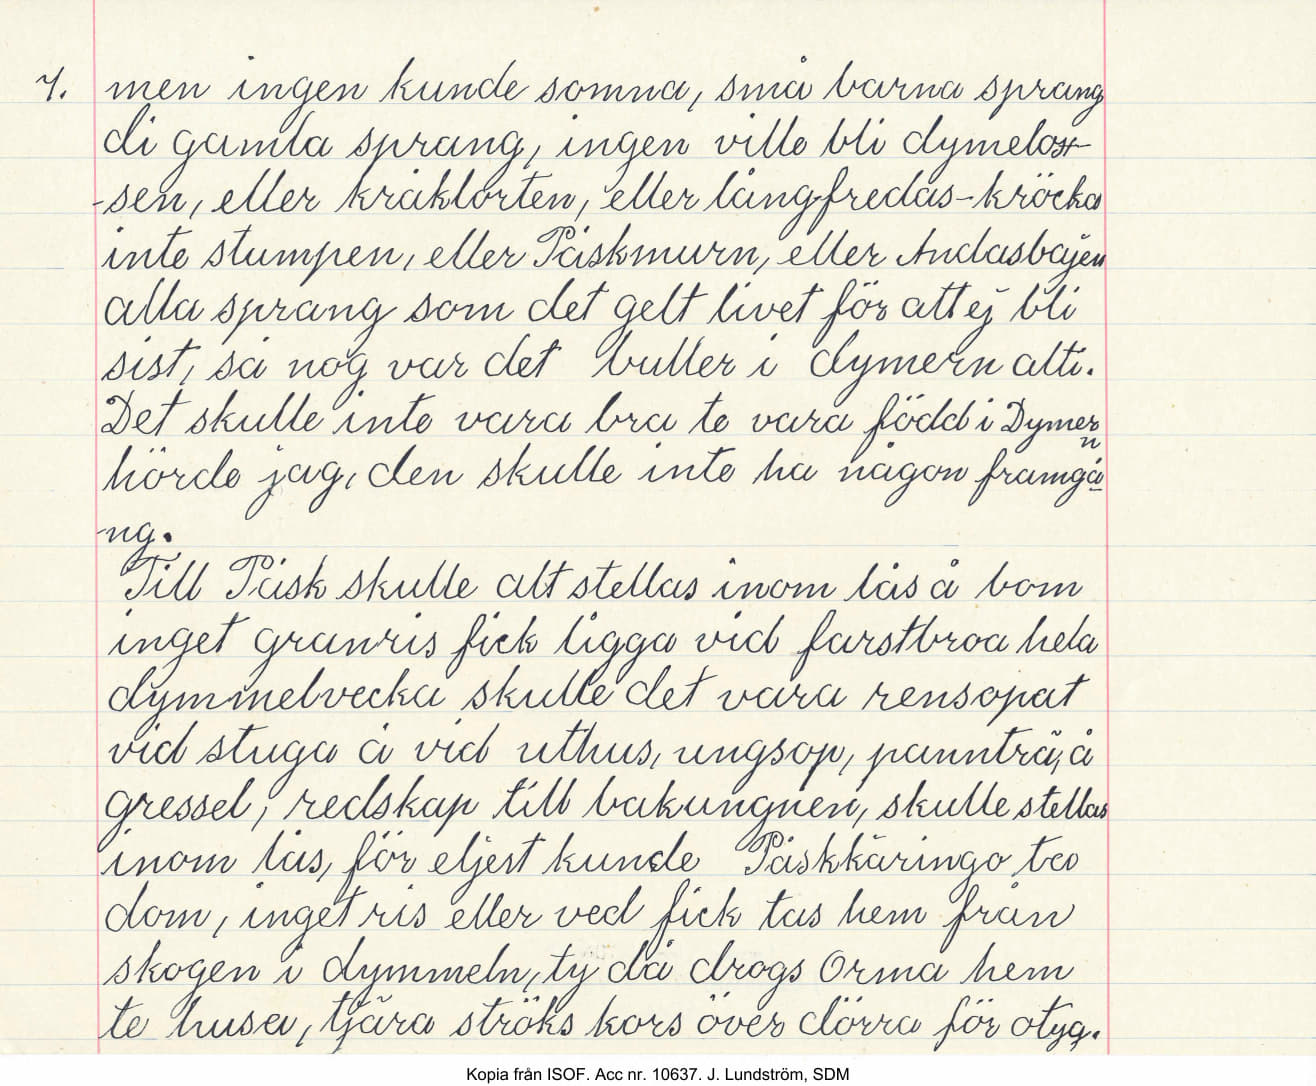 7. men ingen kunde somna, små barna sprang
di gamla sprang, ingen ville bli dymeloss-
-sen, eller kråklorten, eller långfredas-kröcka
inte stumpen, eller Påskmurn, eller Andasbåjen
alla sprang som det gelt livet för att ej bli
sist, så nog var det buller i dymern alti.
Det skulle inte vara bra te vara född i Dymern
hörde jag, den skulle inte ha någon framgå
-ng.
Till Påsk skulle alt stellas inom lås å bom
inget granris fick ligga vid farstbroa hela
dymmelvecka skulle det vara rensopat
vid stuga å vid uthus, ungsop, pannträ, å
gressel, redskap till bakungnen, skulle stellas
inom lås, för eljest kunde Påskkäringo ta
dom, inget ris eller ved fick tas hem från
skogen i dymmeln, ty då drogs Orma hem
te husa, tjära ströks kors över dörra för otyg.
Kopia från ISOF. Acc nr. 10637. J. Lundström, SDM